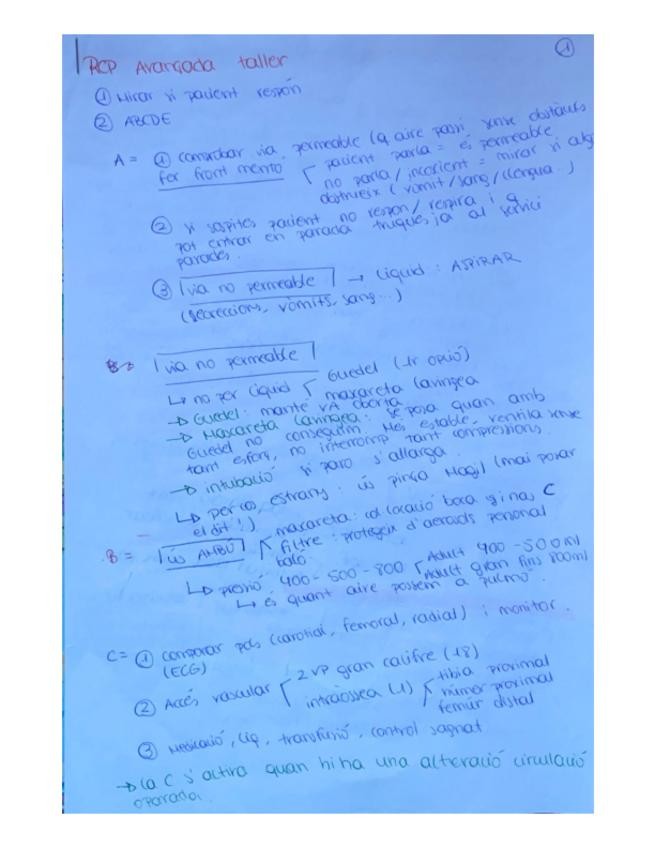 ①
RCP Avançada taller
① Mirar si pacient respón
② ABCDE
A = ① comprobar via permeable (q aire passi sense obstàculs
fer front mentó
pacient parla = és permeable
no parla / inconcient = mirar si alg
obstrueix (vòmit/sang/llengua..)
② si sospites pacient no respon/respira i q
pot entrar en parada truques ja al servici
parades.
③ via no permeable → Líquid: ASPIRAR
(secreccions, vòmits, sang...)
via no permeable
↳ no per líquid
Guedel (1r opció)
mascareta laríngea
→ Guedel: manté VA oberta
→ Mascareta laríngea: se posa quan amb
Guedel no conseguim. Més estable, ventila sense
tant esforç, no interromp tant compressions.
→ intubació si paro s'allarga.
↳ per cos estrany: ús pinça Magil (mai posar
el dit!)
B = ús AMBÚ
mascareta: col·locació boca i nas, C
filtre: protegeix d'aerosols personal
baló
↳ pressió 400-500-800
Adult 400-500ml
Adult gran fins 800ml
↳ és quant aire possem a pulmó.
C = ① comparar pols (carotial, femoral, radial) i monitor.
(ECG)
② Accés vascular
2 VP gran calibre (18)
intraòssea (1)
tibia proximal
húmer proximal
femur distal
③ Medicació, líq, transfusió, control sagnat
→ La C s'activa quan hi ha una alteració circulació
oparada.